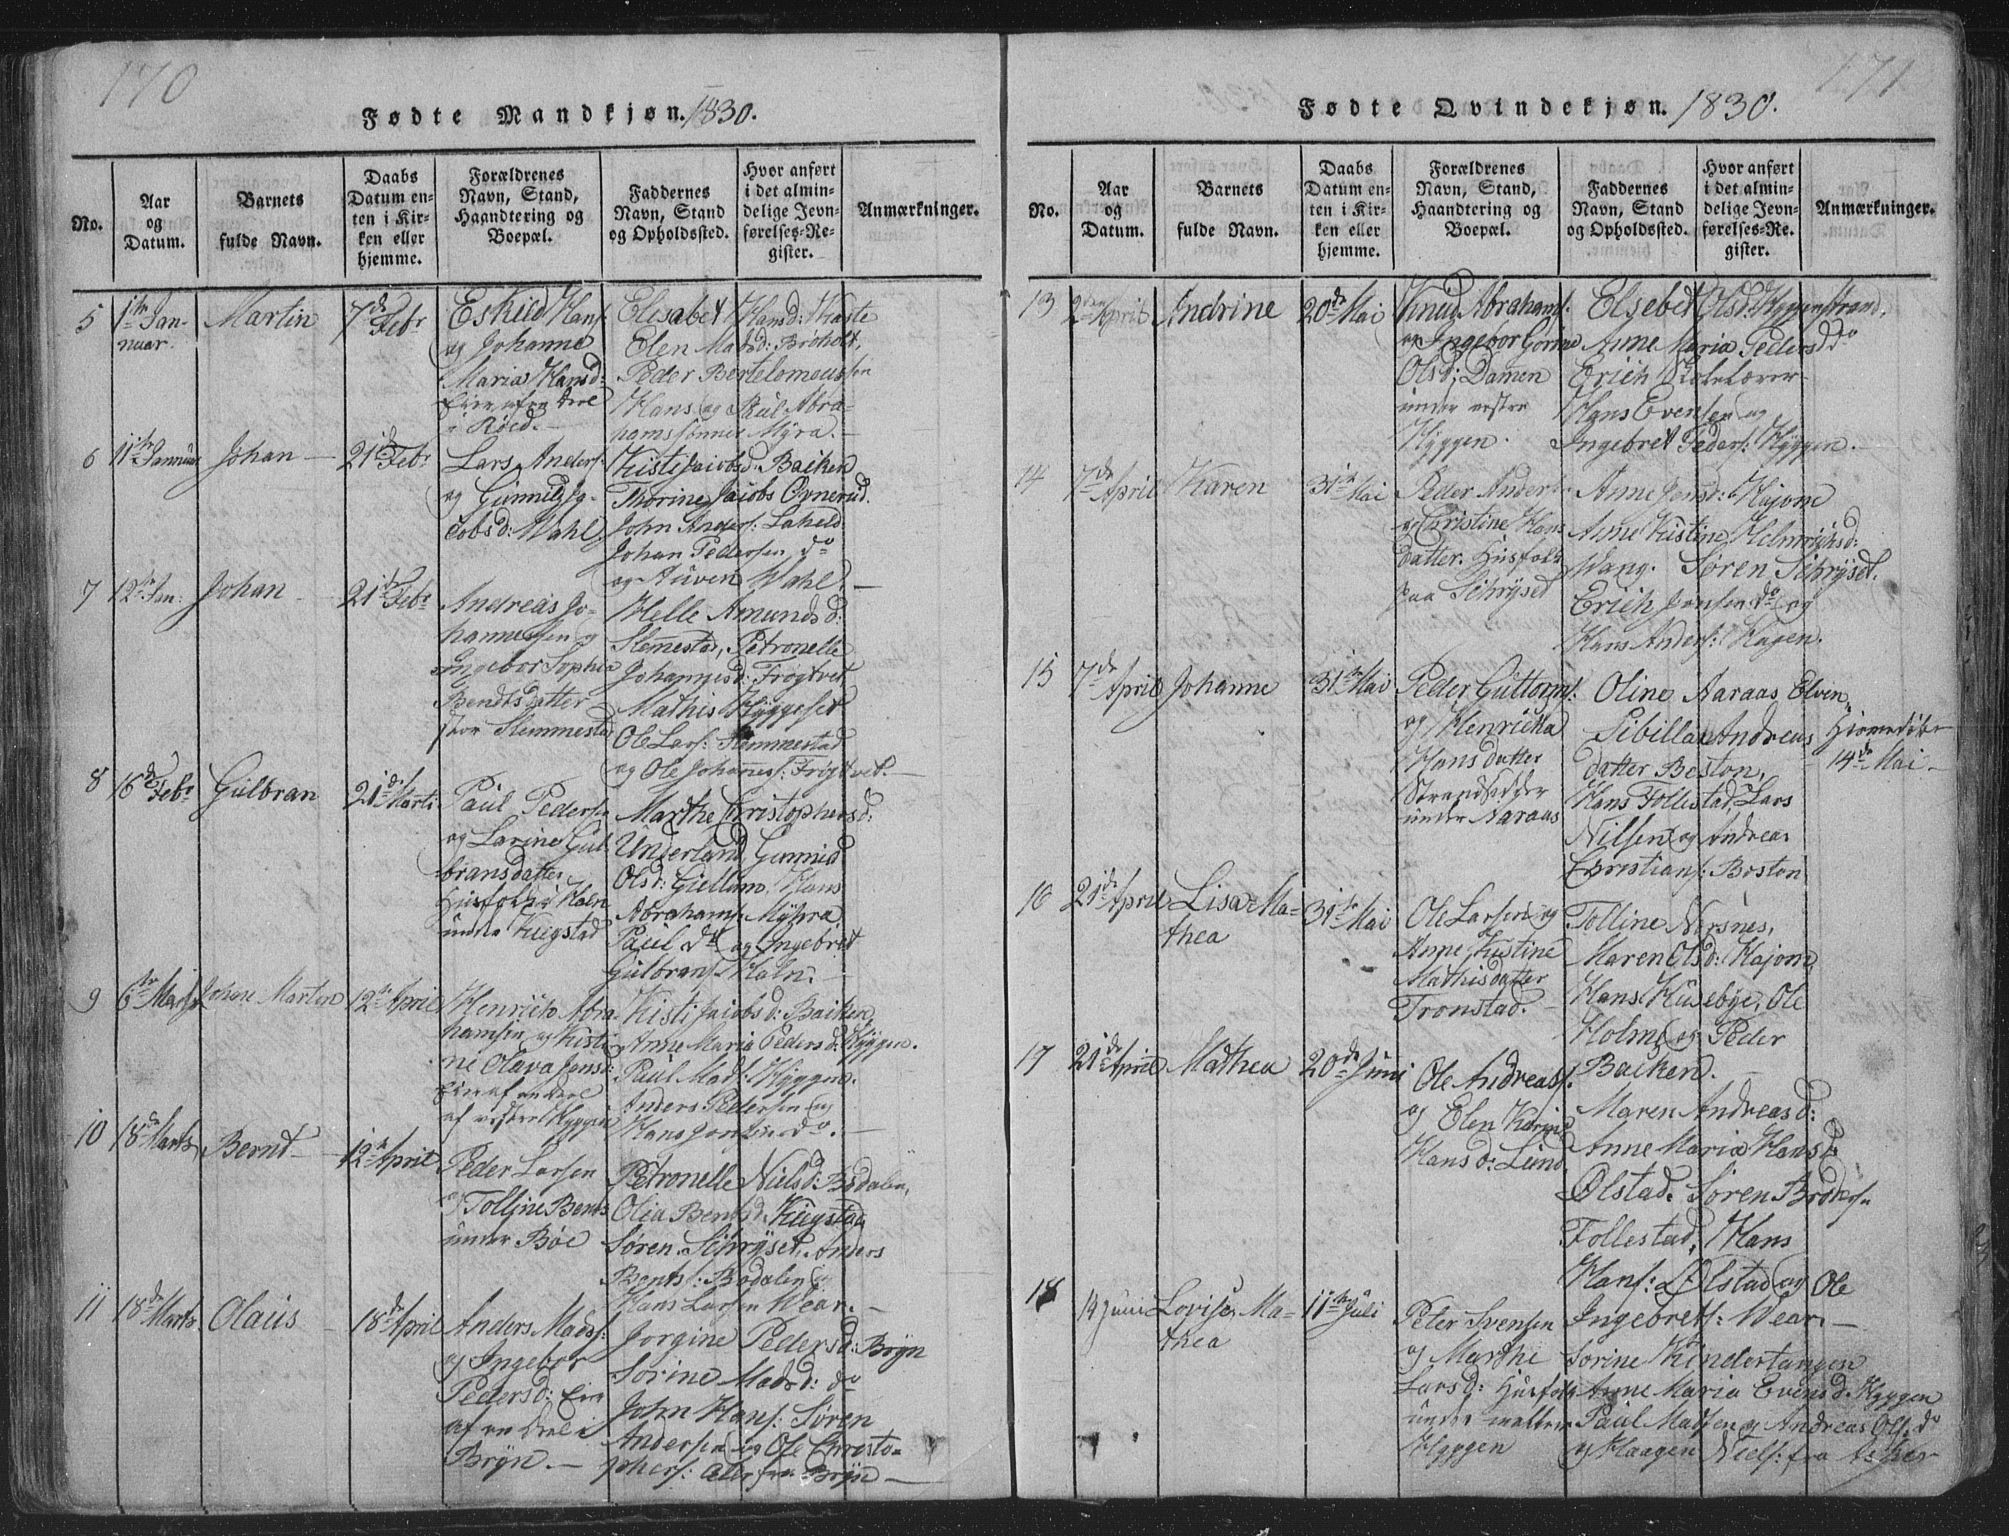 170
Fødte Mandkjøn. 1830.
No.
Aar
og
Datum.
Barnets
fulde Navn.
Daabs
Datum en-
ten i Kir-
ken eller
hjemme.
Forældrenes
Navn, Stand,
Haandtering og
Boepæl.
Faddernes
Navn, Stand
og Opholdssted.
Hvor anført
i det almin-
delige Jevn-
førelses-Re-
gister.
Anmærkninger.
5
1te Jan-
nuar.
Martin
7de Febr
Eskild Hans:
og Johanne
Maria Hansd:
Eier af en Deel
i Röed.
Elisabet Hansd: Næste
Elen Madsd: Bröholt,
Peder Bertelomeussen
Hans og Paul Abra-
hamssönner Myra.
6
11te Januar
Johan
21de Febr
Lars Anders:
og Gunnild Ja-
cobsd: Wahl
Kisti Jacobsd: Backen
Thorine Jacobs Ovnerud.
John Anders: Laheld
Johan Pedersen do
og Auven Wahl.
7
12te Jan:
Johan
21de Febr
Andreas Jo-
hannessen og
Ingebor Sophie
Bendtsdatter
stor Slemmestad
Helle Amundsd:
Slemestad, Petronelle
Johannesd: Frögtvet
Mathis Hyggeset
Ole Lars: Slemmestad
og Ole Johannes: Frögtvet.
8
16de Febr
Gulbran
21de Marts
Paul Pedersen
og Larine Gul-
bransdatter
Husfolk i Haln
under Kiegstad
Marthe Christophersd:
Underland, Gunnild
Olsd: Giellum, Hans
Abrahams: Myhra
Paul do og Ingebret
Gulbrans: Haln.
9
6te Marts
Johan Marton
12te April
Henrich Abra-
hamsen og Kisti-
ne Olava Jensd:
Eier af en Deel
af vestre Hyggen
Kisti Jacobsd: Backen,
Anne Maria Pedersd: Hyggen.
Paul Mads: Hyggen.
Anders Pedersen og
Hans Jensen do.
10
18de Marts
Bernt
12te April
Peder Larsen
og Golline Bents
under Böe
Petronelle Nielsd: Bödalen,
Olia Bentsd: Kiegstad
Sören Schryset, Anders
Bents: Bödalen og
Hans Larsen Wear.
11
18de Marts
Olaus
18de April
Anders Mads:
og Ingebor
Pedersd: Eier
af en Deel i
Bryn.
Jorgine Pedersd: Bryn
Sorine Madsd: do
John Hans: Sören
Andersen og Ole Christo-
phers: alle fra Bryn
171
Fødte Qvindekjøn. 1830.
No.
Aar
og
Datum.
Barnets
fulde Navn.
Daabs
Datum en-
ten i Kir-
ken eller
hjemme.
Forældrenes
Navn, Stand,
Haandtering og
Boepæl.
Faddernes
Navn, Stand
og Opholdssted.
Hvor anført
i det almin-
delige Jevn-
førelses-Re-
gister.
Anmærkninger.
13
2den April
Andrine
20de Mai
Knud Abrahams:
og Ingebor Gorine
Olsd: Damen
under vestre
Hyggen.
Elsebet Olsd: Hyggenstrand,
Anne Maria Pedersd do
Erich Skolelærer
Hans Evensen og
Ingebret Peders: Hyggen.
14
7de April
Karen
31te Mai
Peder Anders:
og Christine Hans
datter. Husfolk
paa Schryset
Anne Jensd: Kajom
Anne Kistine Helmrichsd:
Wang. Sören Schryset.
Erich Jensen do og
Hans Anders: Hagen.
15
7de April
Johanne
31te Mai
Peder Guttorms:
og Henricka
Hansdatter
Strandsidder
under Aaraas
Oline Aaraas Elven,
Sibilla Andreas
datter Boston,
Hans Follestad, Lars
Nilsen og Andreas
Christians: Boston
Hjemedöbt
14de Mai
16
21de April
Lisa Ma-
thea
31te Mai
Ole Larsen og
Anne Kistine
Mathisdatter
Tronstad.
Tolline Nersnes,
Maren Olsd: Kajom
Hans Husebye, Ole
Holm og Peder
Backen.
17
21de April
Mathea
20de Juni
Ole Andreas:
og Elen Karine
Hansd: Lund
Maren Andreasd:
Anne Maria Hansd:
Ølstad. Sören Broders:
Follestad, Hans
Hans: Ølstad og Ole
Ingebrets: Wear.
18
14 Juni
Lovise Ma-
thea
11te Juli
Peter Svensen
og Marthe
Larsd: Husfolk
under mellem
Hyggen
Sorine Kinnertangen
Anne Maria Evensd: Hyggen
Paul Madsen og Andreas Ols: do
og Haagen Niels: fra Asker